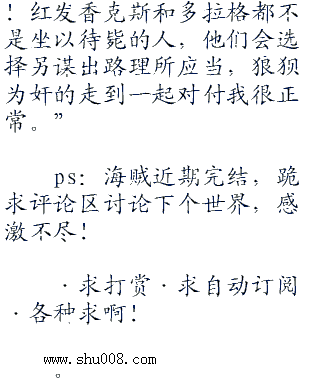 ！红发香克斯和多拉格都不
是坐以待毙的人，他们会选
择另谋出路理所应当，狼狈
为奸的走到一起对付我很正
常。”
ps：海贼近期完结，跪
求评论区讨论下个世界，感
激不尽！
·求打赏·求自动订阅
·各种求啊！
www.shu008.com
。